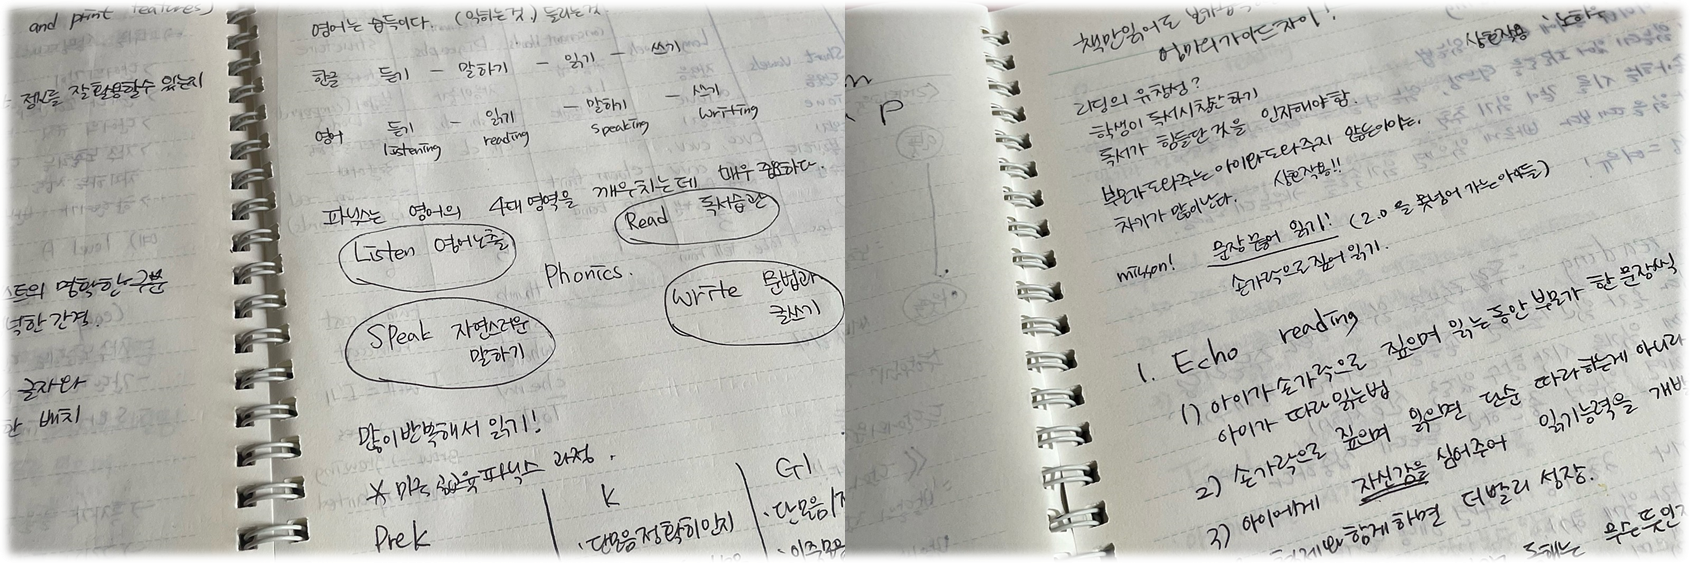 and print features)
정보를 잘 활용할수 있는지
스트의 명확한 구분
넉한 간격.
글자와
한 배치
영어는 습득이다. (익히는것,) 들리는것.
한글 듣기 - 말하기 - 읽기 - 쓰기
영어 듣기 - 읽기 - 말하기 - 쓰기
listening reading speaking writing
파닉스는 영어의 4대영역을 깨우치는데 매우 중요하다.
Listen 영어노출
Read 독서습관
Phonics.
Speak 자연스러운
말하기
Write 문법과
글쓰기
많이 반복해서 읽기!
* 미국 교육 파닉스 과정.
Prek
K
G1
· 단모음 정확히 인지
· 단모음/
p
책만읽어도
엄마의 가이드 차이!
상호작용
리딩의 유창성?
학생이 독서시 칭찬하기
독서가 힘들단 것을 인지해야함.
부모가 도와주는 아이와 도와주지 않는아이는.
차가가 많이난다. 상호작용!!
mission! 문장 끊어 읽기! (2.0 을 못넘어 가는 아이들)
손가락으로 짚어 읽기.
1. Echo reading
1) 아이가 손가락으로 짚으며 읽는 동안 부모가 한 문장씩
아이가 따라 읽는법
2) 손가락으로 짚으며 읽으면 단순 따라하는게 아니라
3) 아이에게 자신감을 심어주어 읽기능력을
함께하면 더빨리 성장.
무슨뜻인지